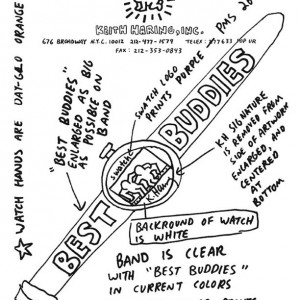 KEITH HARING, INC.
676 BROADWAY N.Y.C. 10012 212-477-1579 TELEX: 677633 POP UR
FAX: 212-353-0843
PMS 28
☆ WATCH HANDS ARE DAY-GLO ORANGE
"BEST BUDDIES"
ENLARGED AS BIG
AS POSSIBLE IN
BAND
SWATCH LOGO
PRINTS PURPLE
BUDDIES
KH SIGNATURE
IS REMOVED FROM
SIDE OF ARTWORK
ENLARGED, AND
CENTERED
AT
BOTTOM
swatch
K. Haring
BEST
BACKROUND OF WATCH
IS WHITE
BAND IS CLEAR
WITH "BEST BUDDIES"
IN CURRENT COLORS